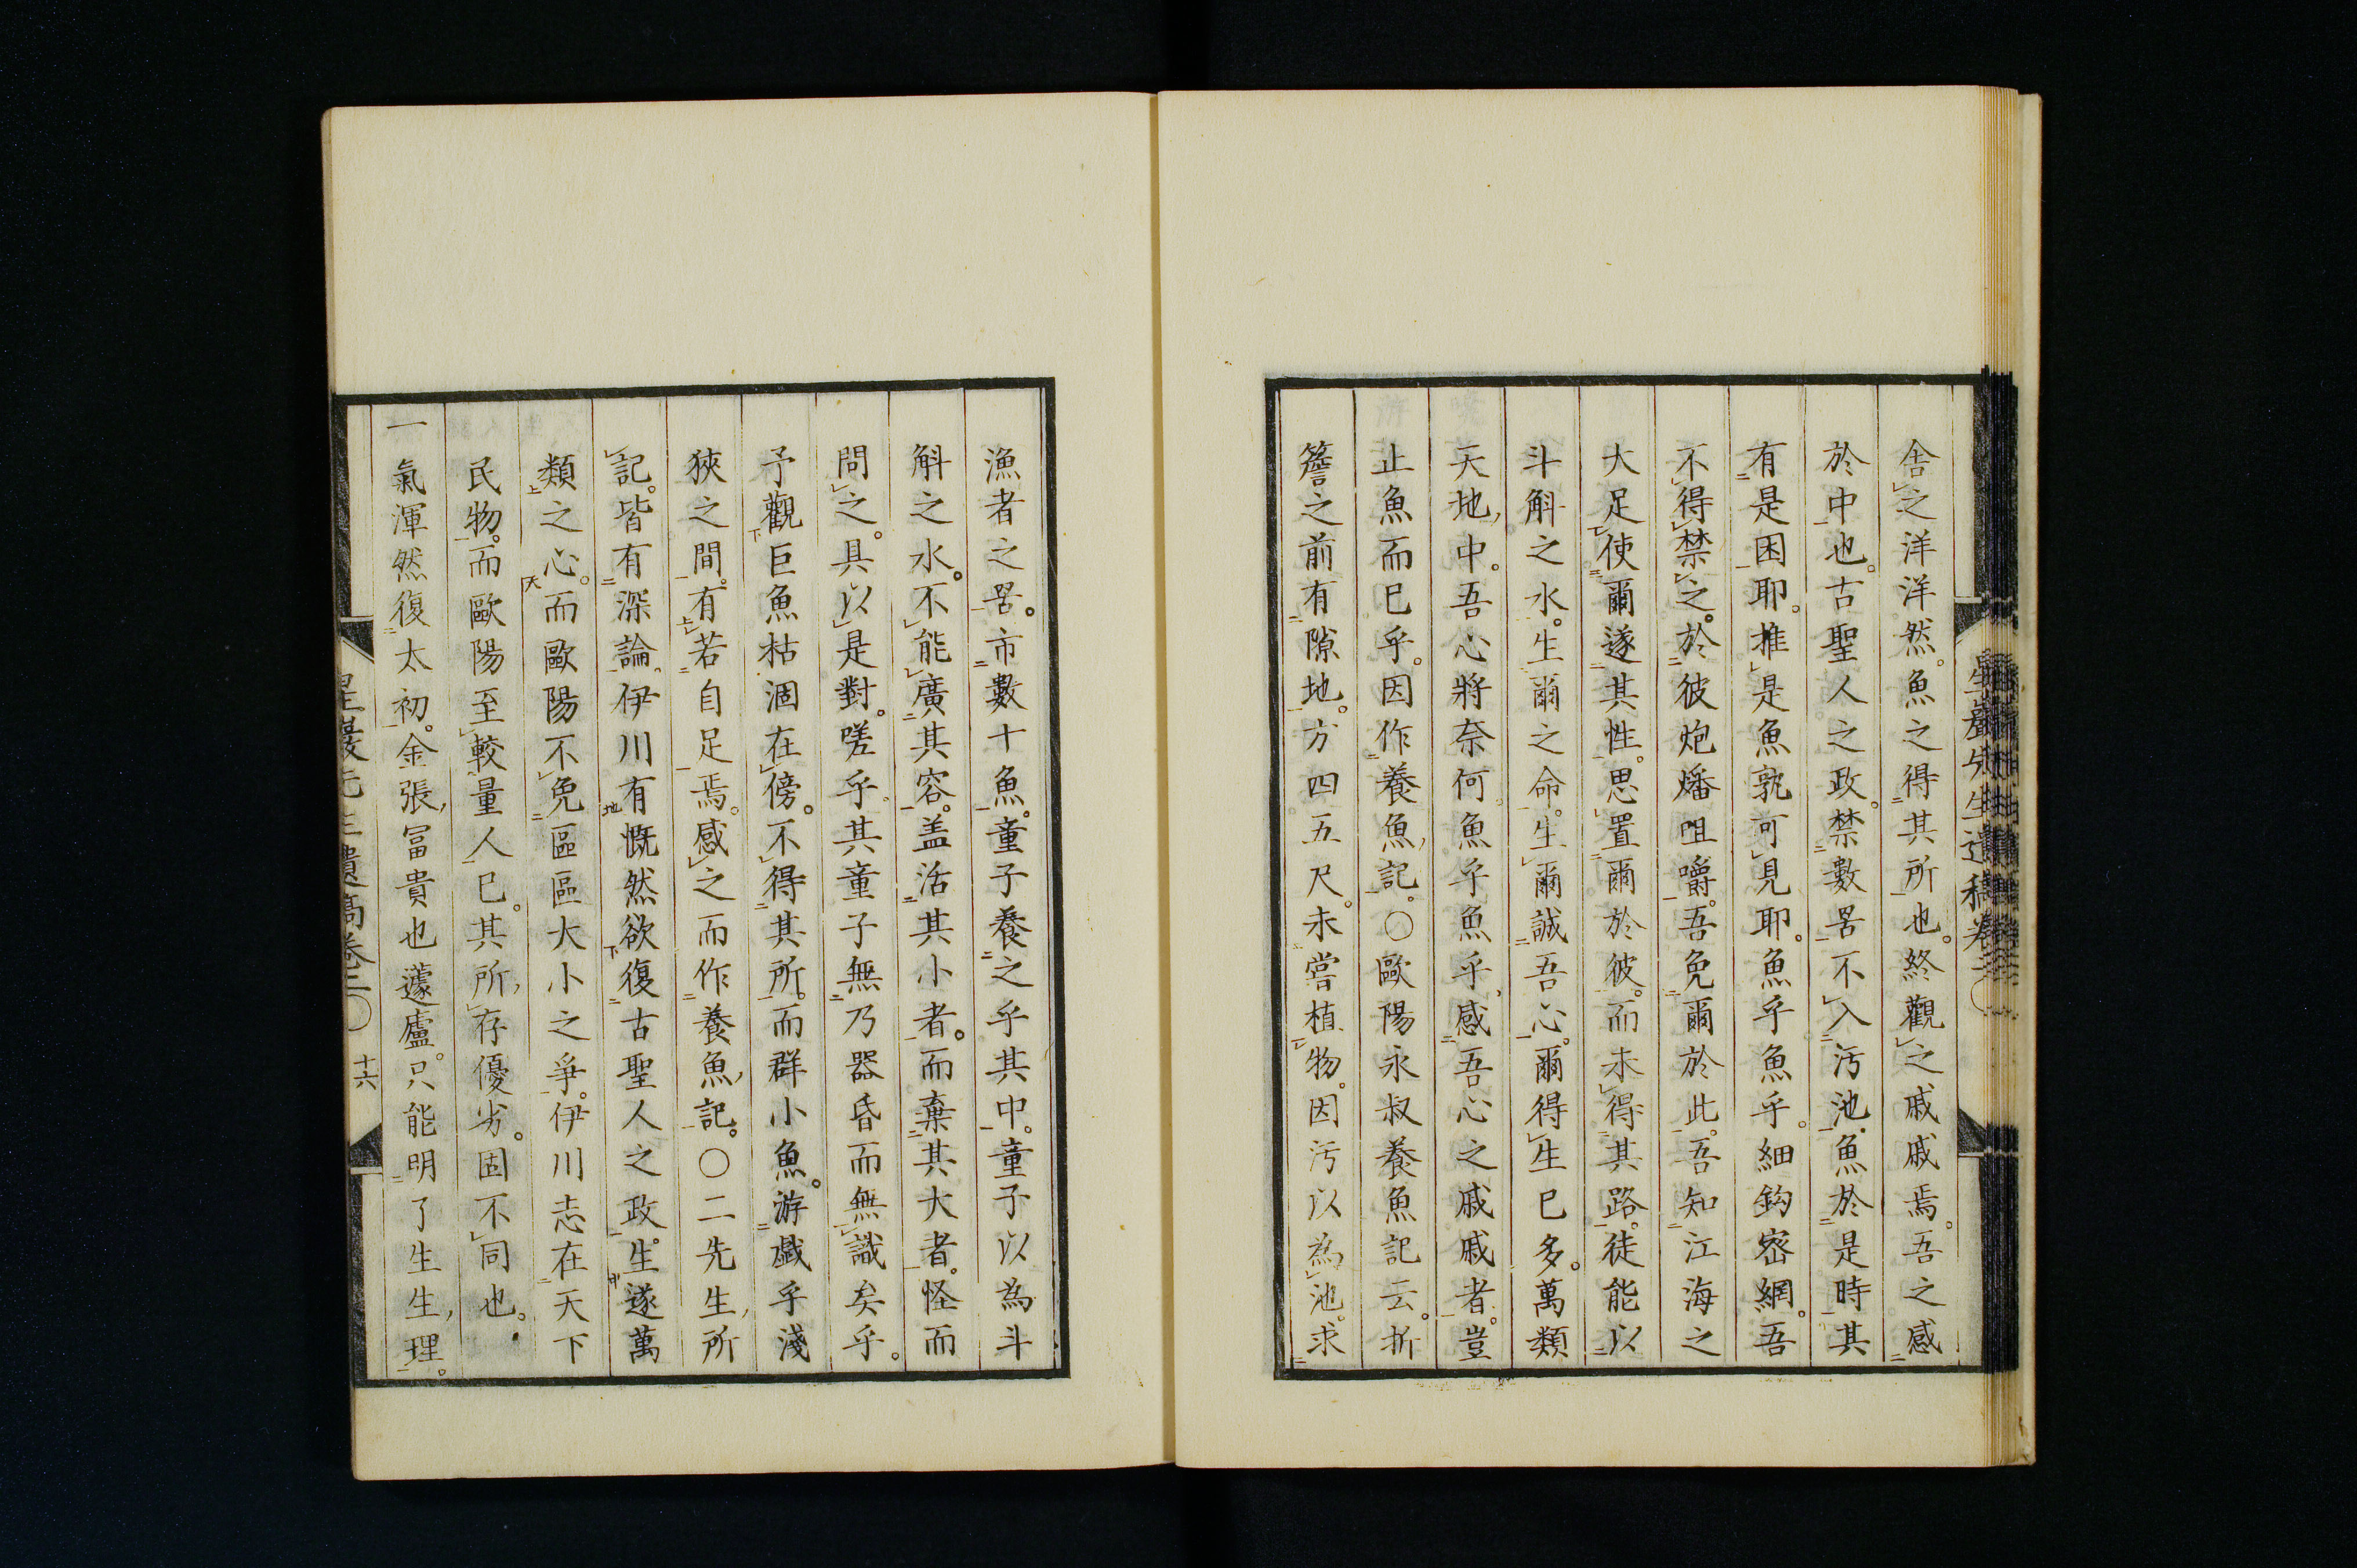 舎之洋洋然。魚之得其所也。終觀之戚戚焉。吾之感
於中也。古聖人之政。禁數罟不入汚池。魚於是時其
有是困耶。推是魚孰可見耶。魚乎魚乎。細鈎密網。吾
不得禁之。於彼炮燔咀嚼。吾免爾於此。吾知江海之
大足使爾遂其性。思置爾於彼。而未得其路。徒能以
斗斛之水。生爾之命。生爾誠吾心。爾得生已多。萬類
天地中。吾心將奈何魚乎魚乎。感吾心之戚戚者。豈
止魚而已乎。因作養魚記。○歐陽永叔養魚記云。折
簷之前有隙地。方四五尺。未嘗植物。因汚以為池。求
漁者之罟。市數十魚。童子養之乎其中。童子以為斗
斛之水。不能廣其容。盖活其小者。而棄其大者。怪而
問之。具以是對。嗟乎。其童子無乃器昏而無識矣乎。
予觀巨魚枯涸在傍。不得其所。而群小魚。游戯乎淺
狹之間。有若自足焉。感之而作養魚記。○二先生所
記。皆有深論。伊川有慨然欲復古聖人之政。生遂萬
類之心。而歐陽不免區區大小之爭。伊川志在天下
民物。而歐陽至較量人已。其所存優劣。固不同也。
一氣渾然復太初。金張冨貴也蘧廬。只能明了生生理。
十六